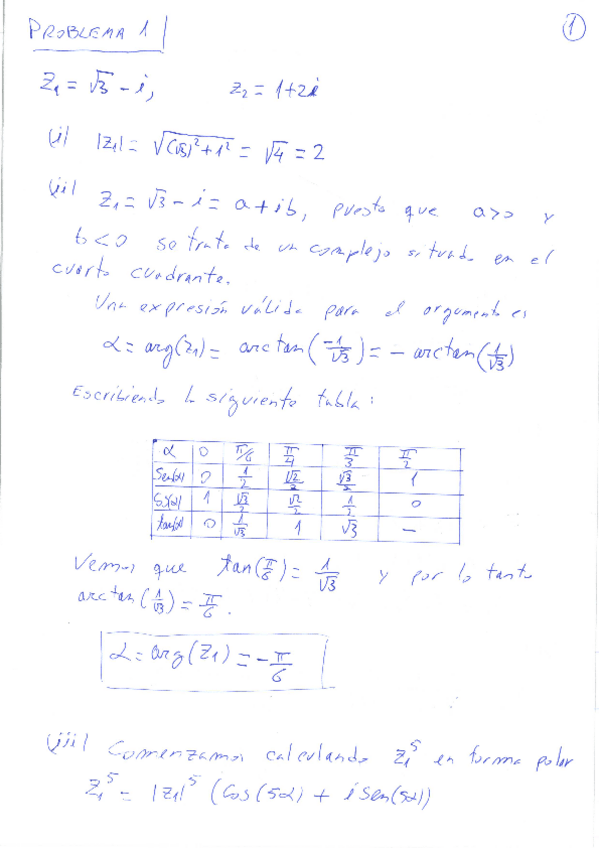 PROBLEMA 1
1
Z₁ = √3 − i, Z₂ = 1+2i
(i) |Z₁| = √((√3)²+1²) = √4 = 2
(ii) Z₁ = √3 − i = a + ib, puesto que a>0 y
b<0 se trata de un complejo situado en el
cuarto cuadrante.
Una expresión válida para el argumento es
α = arg(Z₁) = arctan(−1/√3) = − arctan(1/√3)
Escribiendo la siguiente tabla:
α 0 π/6 π/4 π/3 π/2
Sen(α) 0 1/2 √2/2 √3/2 1
Cos(α) 1 √3/2 √2/2 1/2 0
tan(α) 0 1/√3 1 √3 —
Vemos que tan(π/6) = 1/√3 y por lo tanto
arctan(1/√3) = π/6.
α = arg(Z₁) = −π/6
(iii) Comenzamos calculando Z₁⁵ en forma polar
Z₁⁵ = |Z₁|⁵ (Cos(5α) + i Sen(5α))